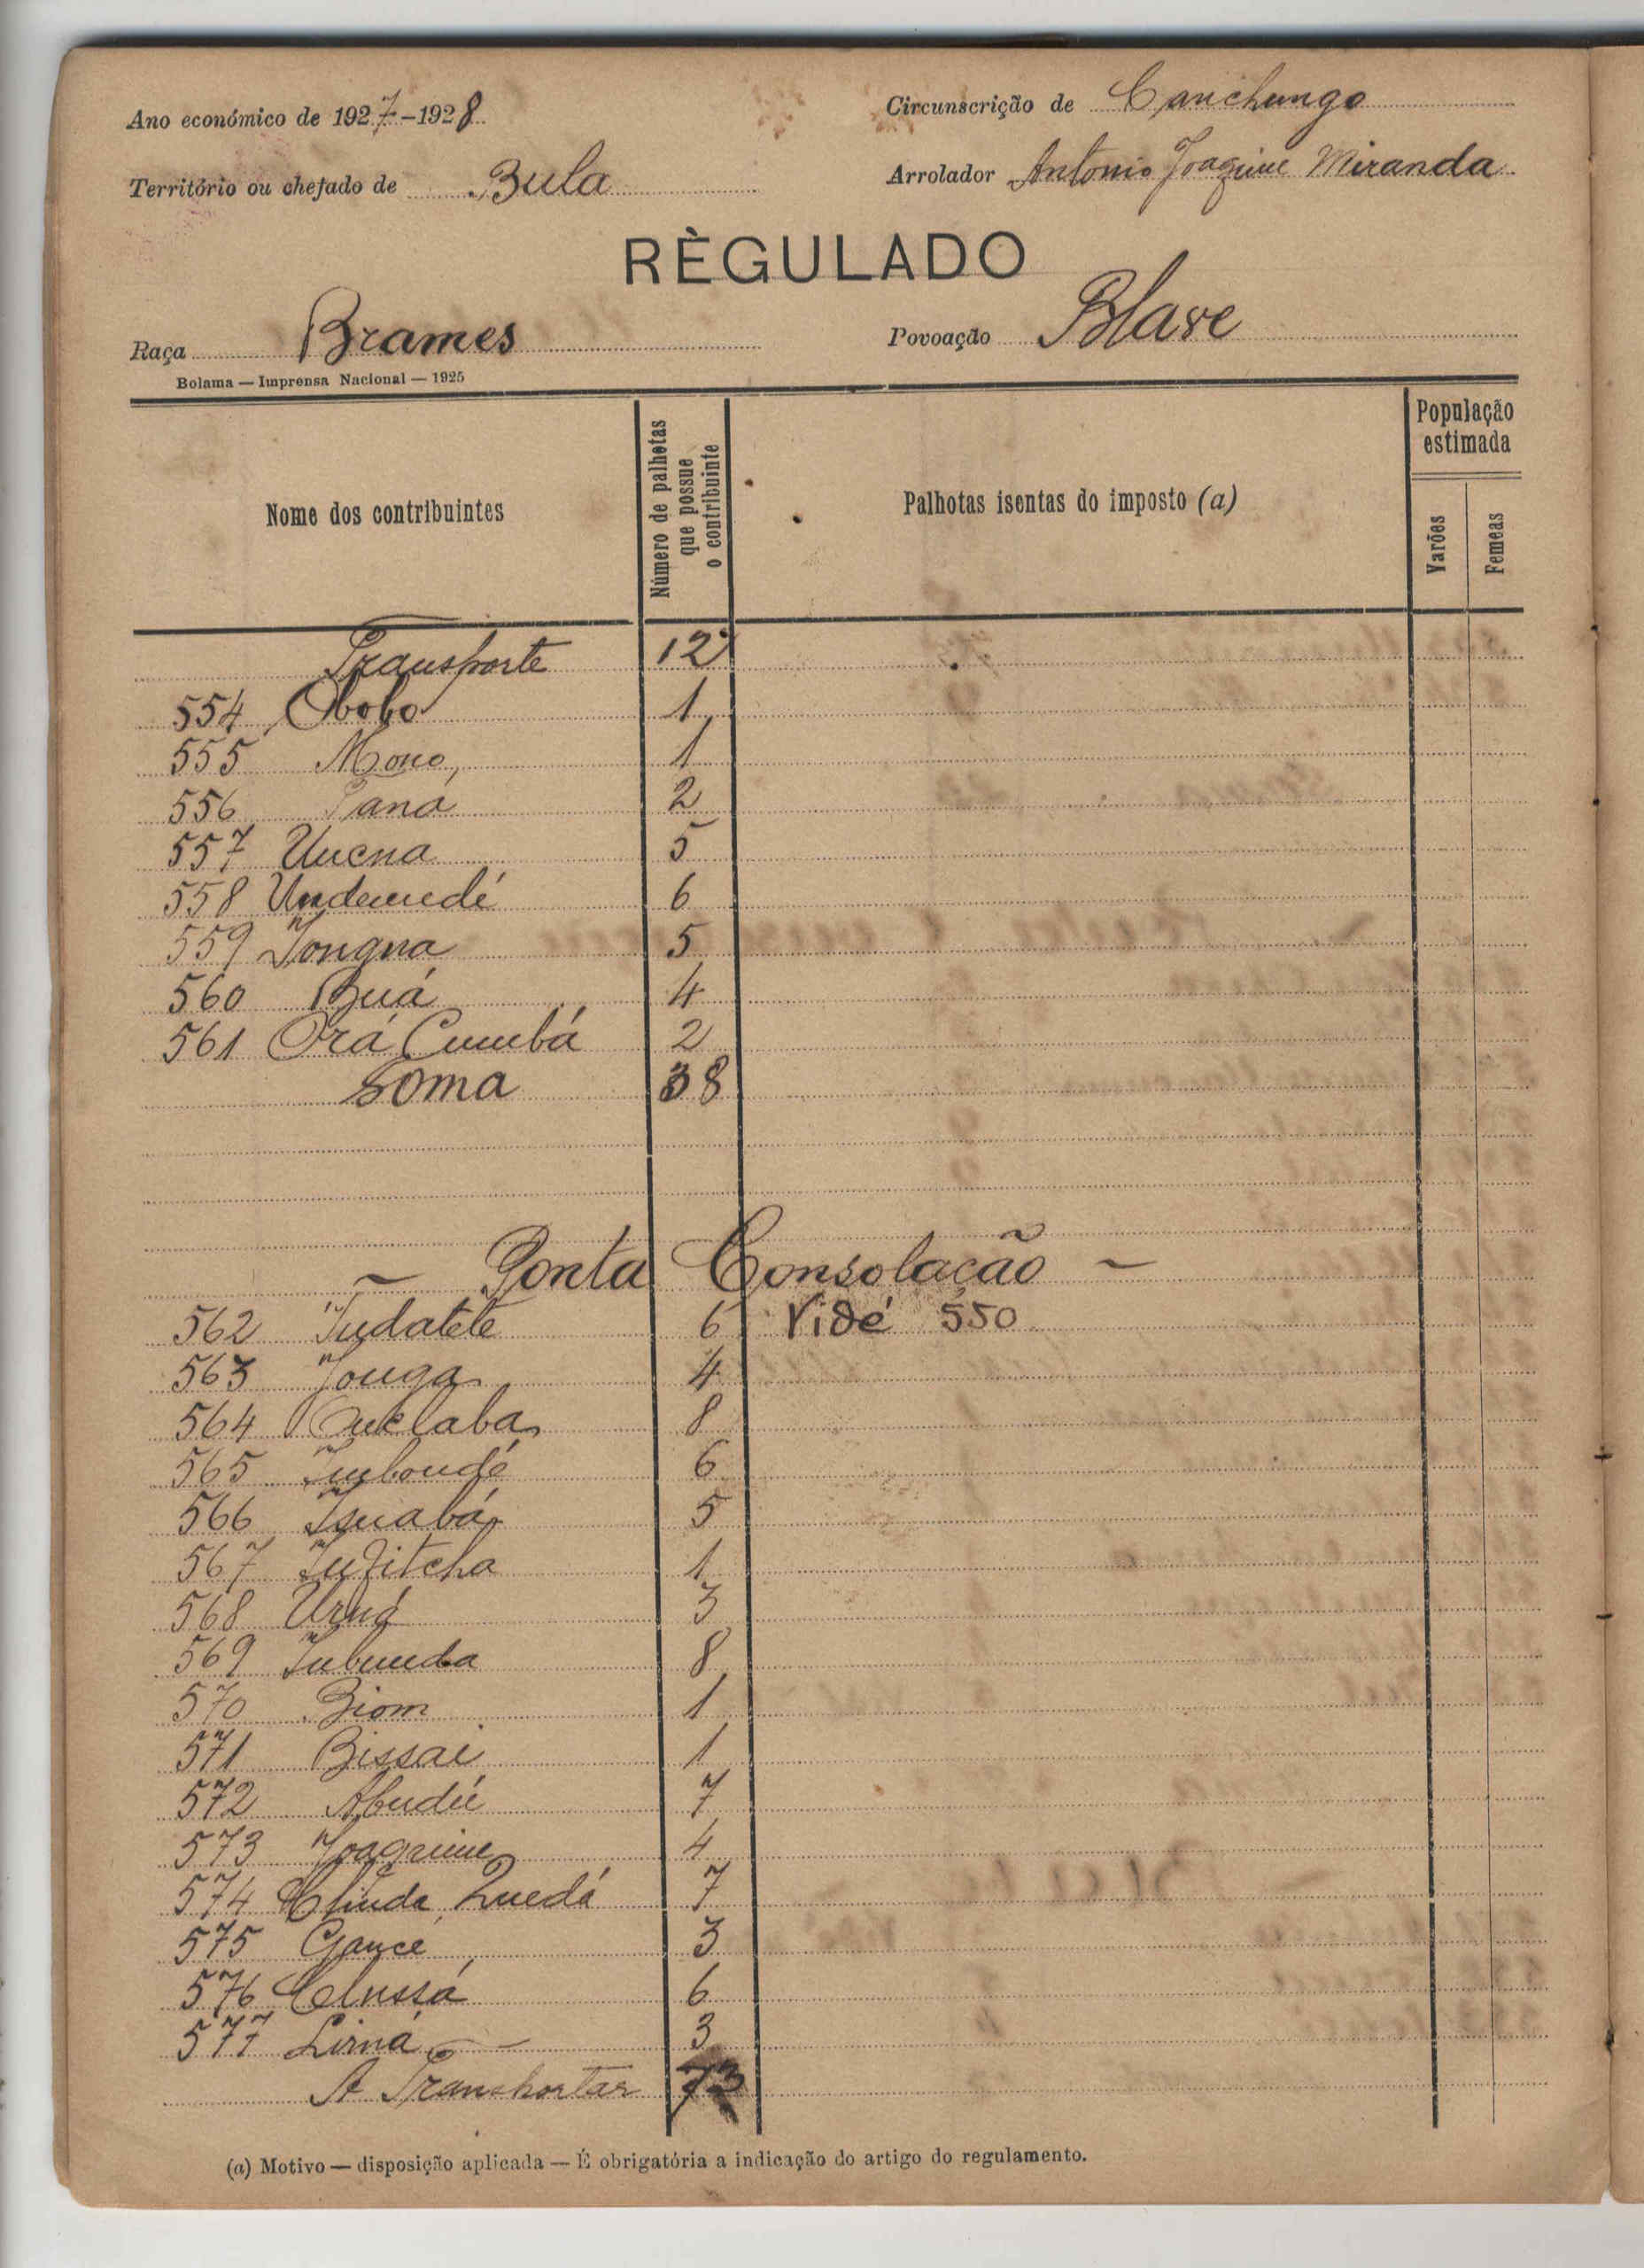 Ano económico de 1927-1928
Circunscrição de Canchungo
Território ou chefado de Bula
Arrolador Antonio Joaquim Miranda
RÈGULADO
Raça Brames
Povoação Blave
Bolama — Imprensa Nacional — 1925
Nome dos contribuintes
Número de palhotas que possue o contribuinte
Palhotas isentas do imposto (a)
População estimada
Varões
Femeas
Transporte 12
554 Obobo 1
555 Mono 1
556 Taná 2
557 Uucna 5
558 Undemedé 6
559 Tongna 5
560 Buá 4
561 Orá Cumbá 2
Soma 38
— Ponta Consolação —
562 Tudatete 6 Vidé 550
563 Jouga 4
564 Queclaba 8
565 Imboudé 6
566 Isuabá 5
567 Jufitcha 1
568 Urná 3
569 Jubunda 8
570 Biom 1
571 Bissai 1
572 Abudú 7
573 Joaquim 4
574 Quedá 7
575 Gance 3
576 Clussá 6
577 Lirná — 3
A Transportar 73
(a) Motivo — disposição aplicada — É obrigatória a indicação do artigo do regulamento.